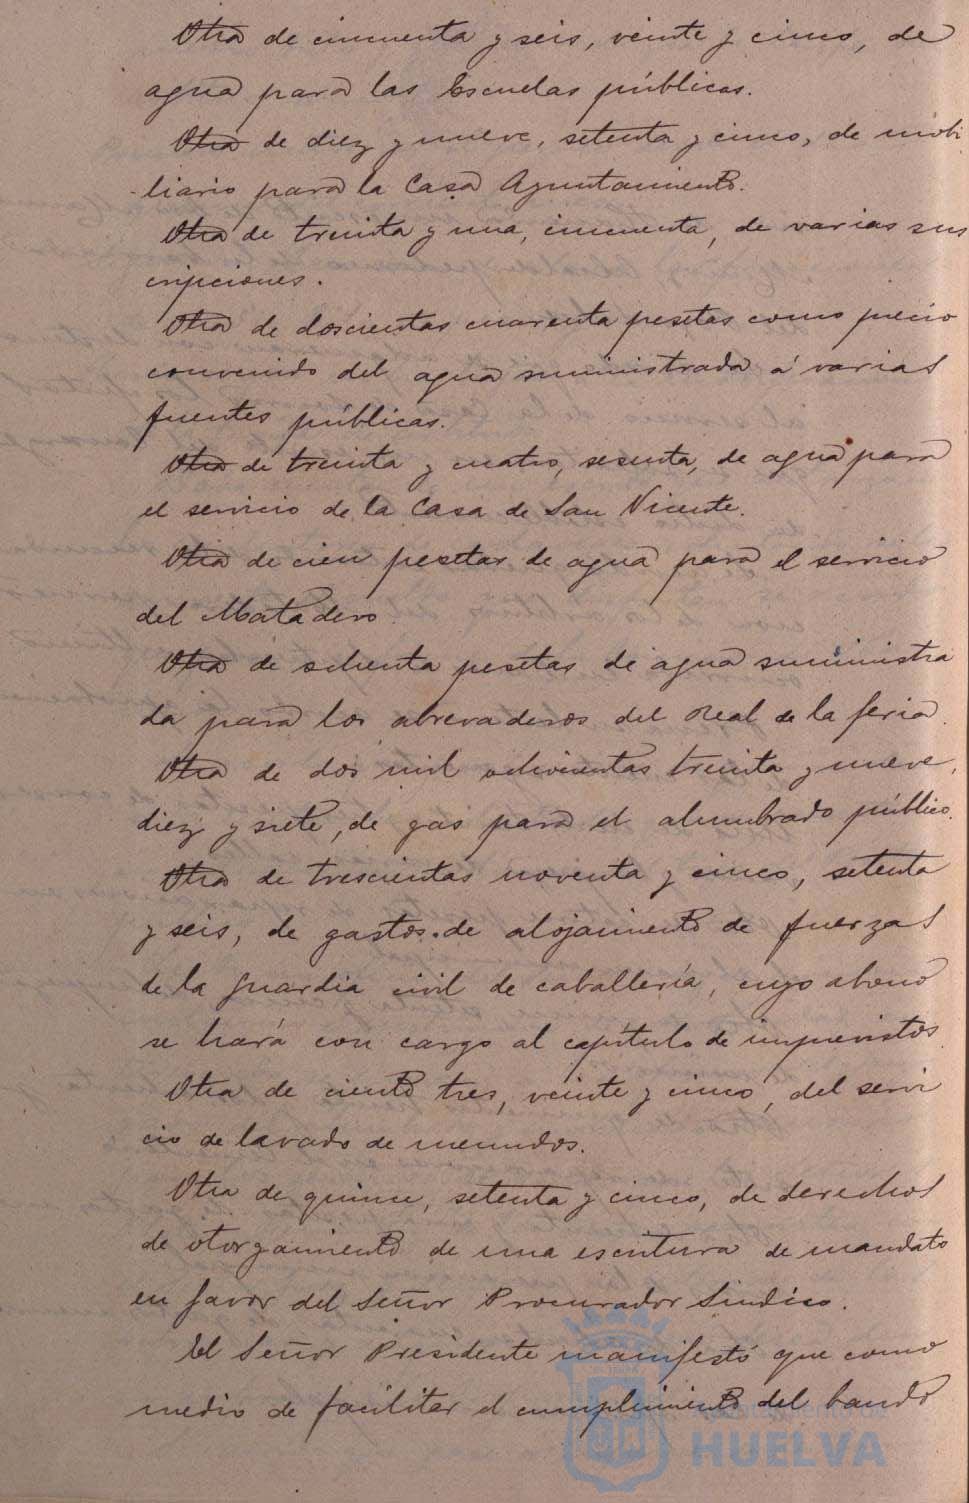 Otra de cincuenta y seis, veinte y cinco, de
agua para las Escuelas públicas.
Otra de diez y nueve, setenta y cinco, de mobi
-liario para la Casa Ayuntamiento.
Otra de treinta y una, cincuenta, de varias sus
cripciones.
Otra de doscientas cuarenta pesetas como precio
convenido del agua suministrada á varias
fuentes públicas.
Otra de treinta y cuatro, sesenta, de agua para
el servicio de la Casa de San Vicente.
Otra de cien pesetas de agua para el servicio
del Matadero.
Otra de setenta pesetas de agua suministra
da para los abrevaderos del Real de la feria.
Otra de dos mil ochocientas treinta y nueve,
diez y siete, de gas para el alumbrado público.
Otra de trescientas noventa y cinco, setenta
y seis, de gastos de alojamiento de fuerzas
de la guardia civil de caballería, cuyo abono
se hará con cargo al capítulo de imprevistos.
Otra de ciento tres, veinte y cinco, del servi
cio de lavado de menudos.
Otra de quince, setenta y cinco, de derechos
de otorgamiento de una escritura de mandato
en favor del Señor Procurador Síndico.
El Señor Presidente manifestó que como
medio de facilitar el cumplimiento del bando
Ayuntamiento de
HUELVA